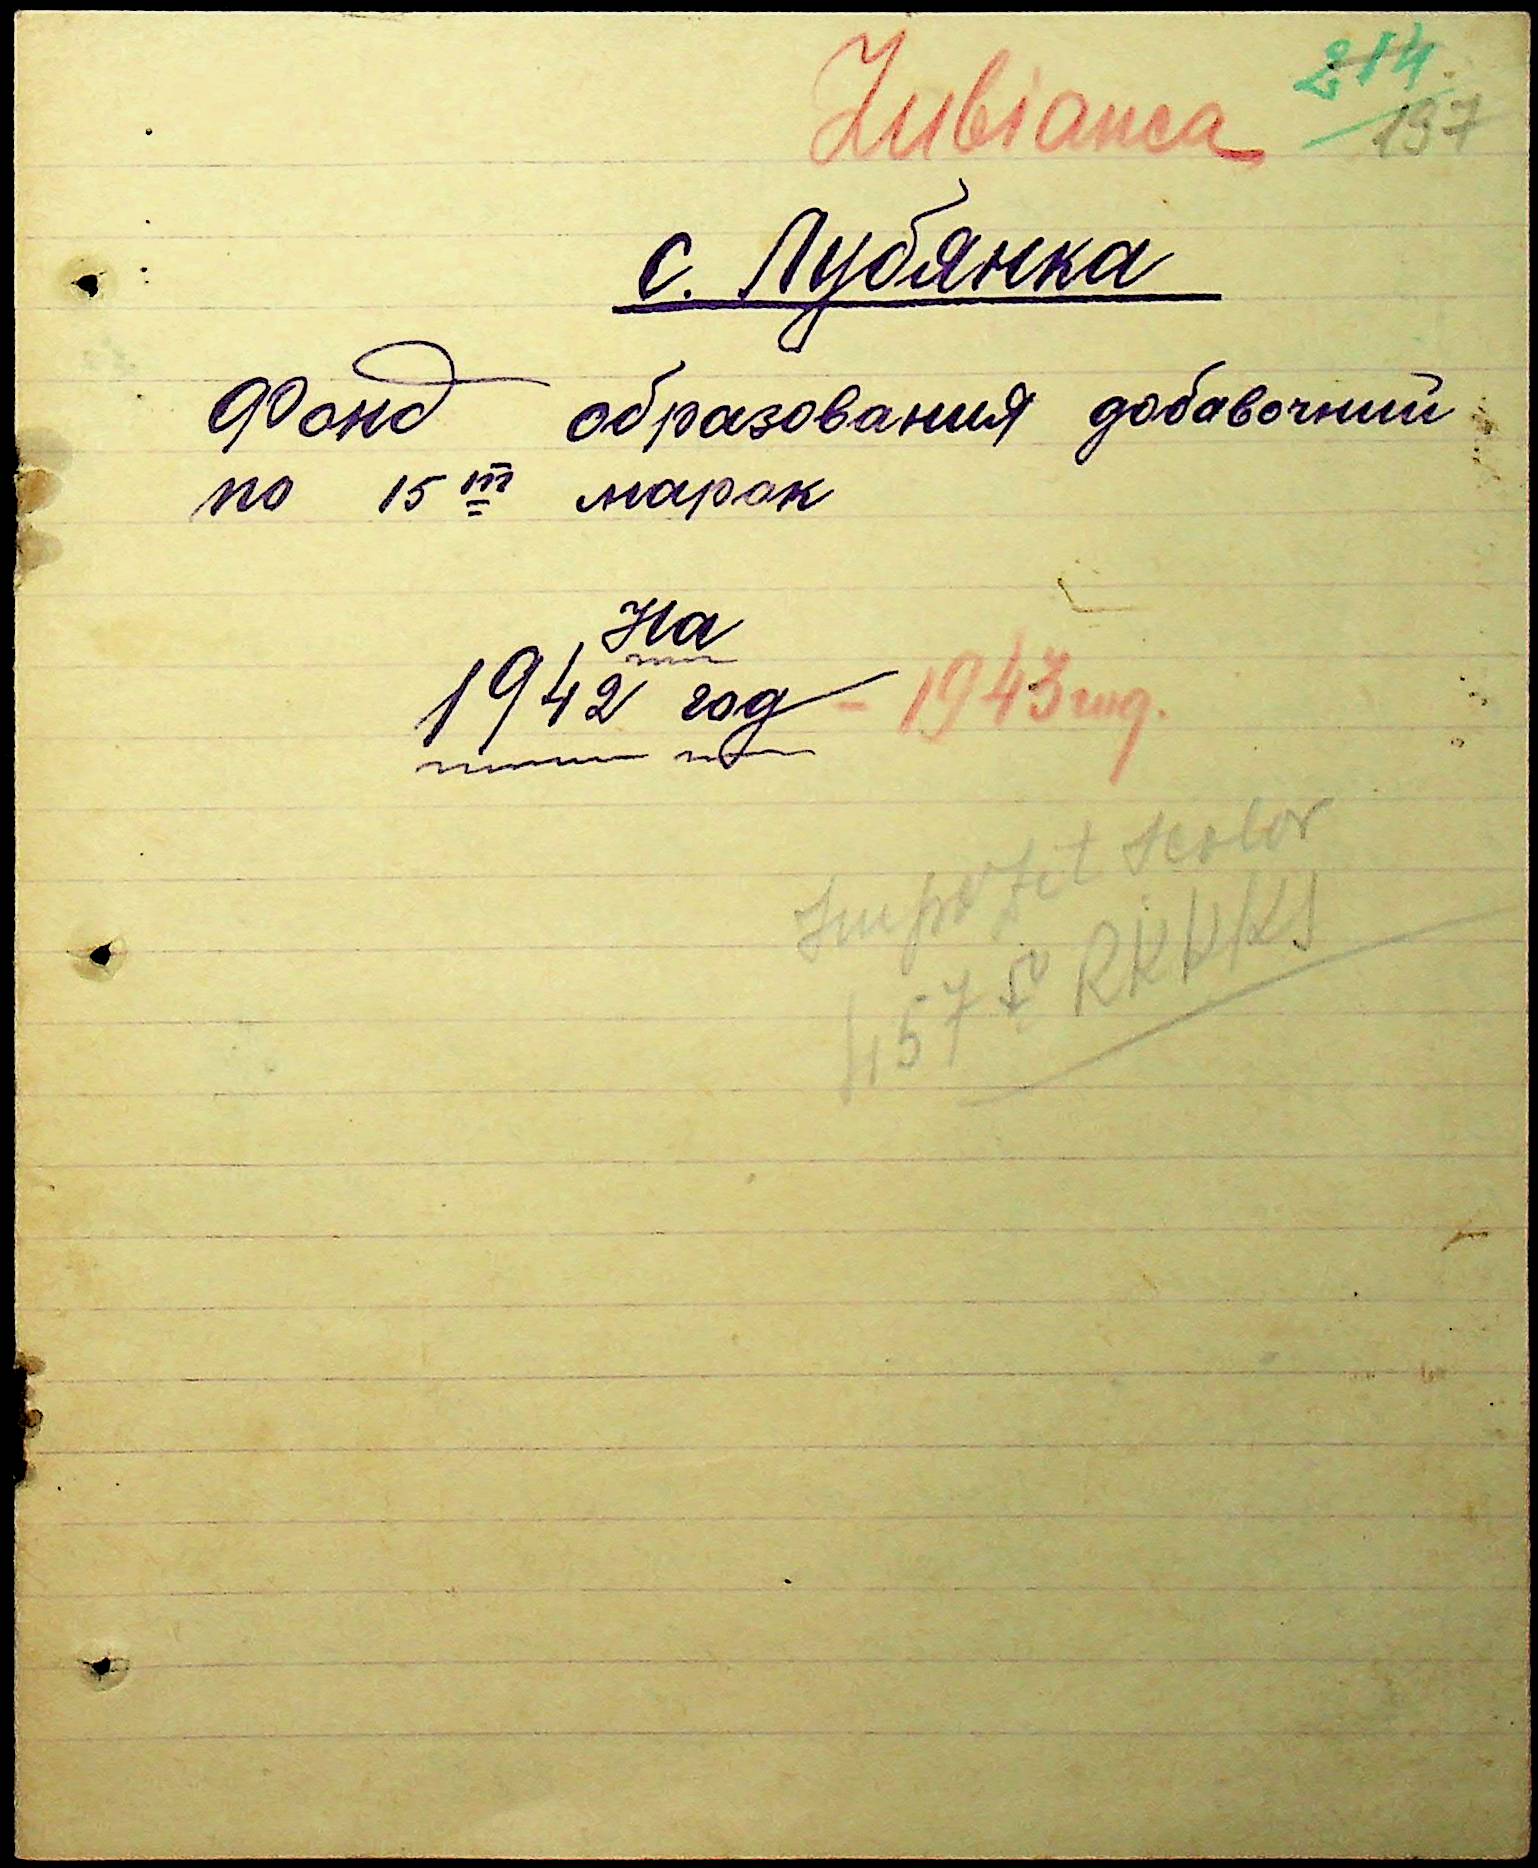 Lubianca 214
197
с. Лубянка
Фонд образования добавочний
по 15 т марок
На
1942 год - 1943 год.
Impozit scolor
4575 RKKKS